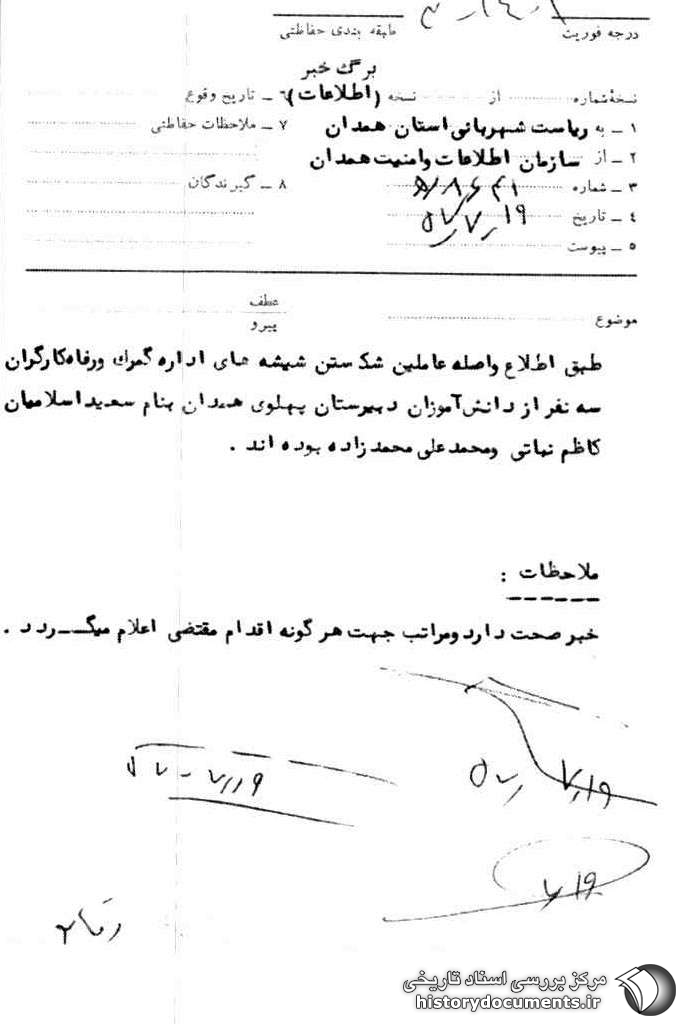 درجه فوریت
طبقه بندی حفاظتی
برگ خبر
(اطلاعات)
نسخهٔ شماره از نسخه
۱ ـ به ریاست شهربانی استان همدان
۲ ـ از سازمان اطلاعات وامنیت همدان
۳ ـ شماره
۴ ـ تاریخ ۵۷٫۷٫۱۹
۵ ـ پیوست
۶ ـ تاریخ وقوع
۷ ـ ملاحظات حفاظتی
۸ ـ گیرندگان
موضوع
عطف
پیرو
طبق اطلاع واصله عاملین شکستن شیشه های اداره گمرك ورفاه کارگران
سه نفر از دانش‌آموزان دبیرستان پهلوی همدان بنام سعید اسلامیان
کاظم نباتی ومحمد علی محمد زاده بوده اند .
ملاحظات :
خبر صحت دارد ومراتب جهت هر گونه اقدام مقتضی اعلام میگـــردد .
۵۷٫۷٫۱۹
۵۷٫۷٫۱۹
۷٫۱۹
مرکز بررسی اسناد تاریخی
historydocuments.ir